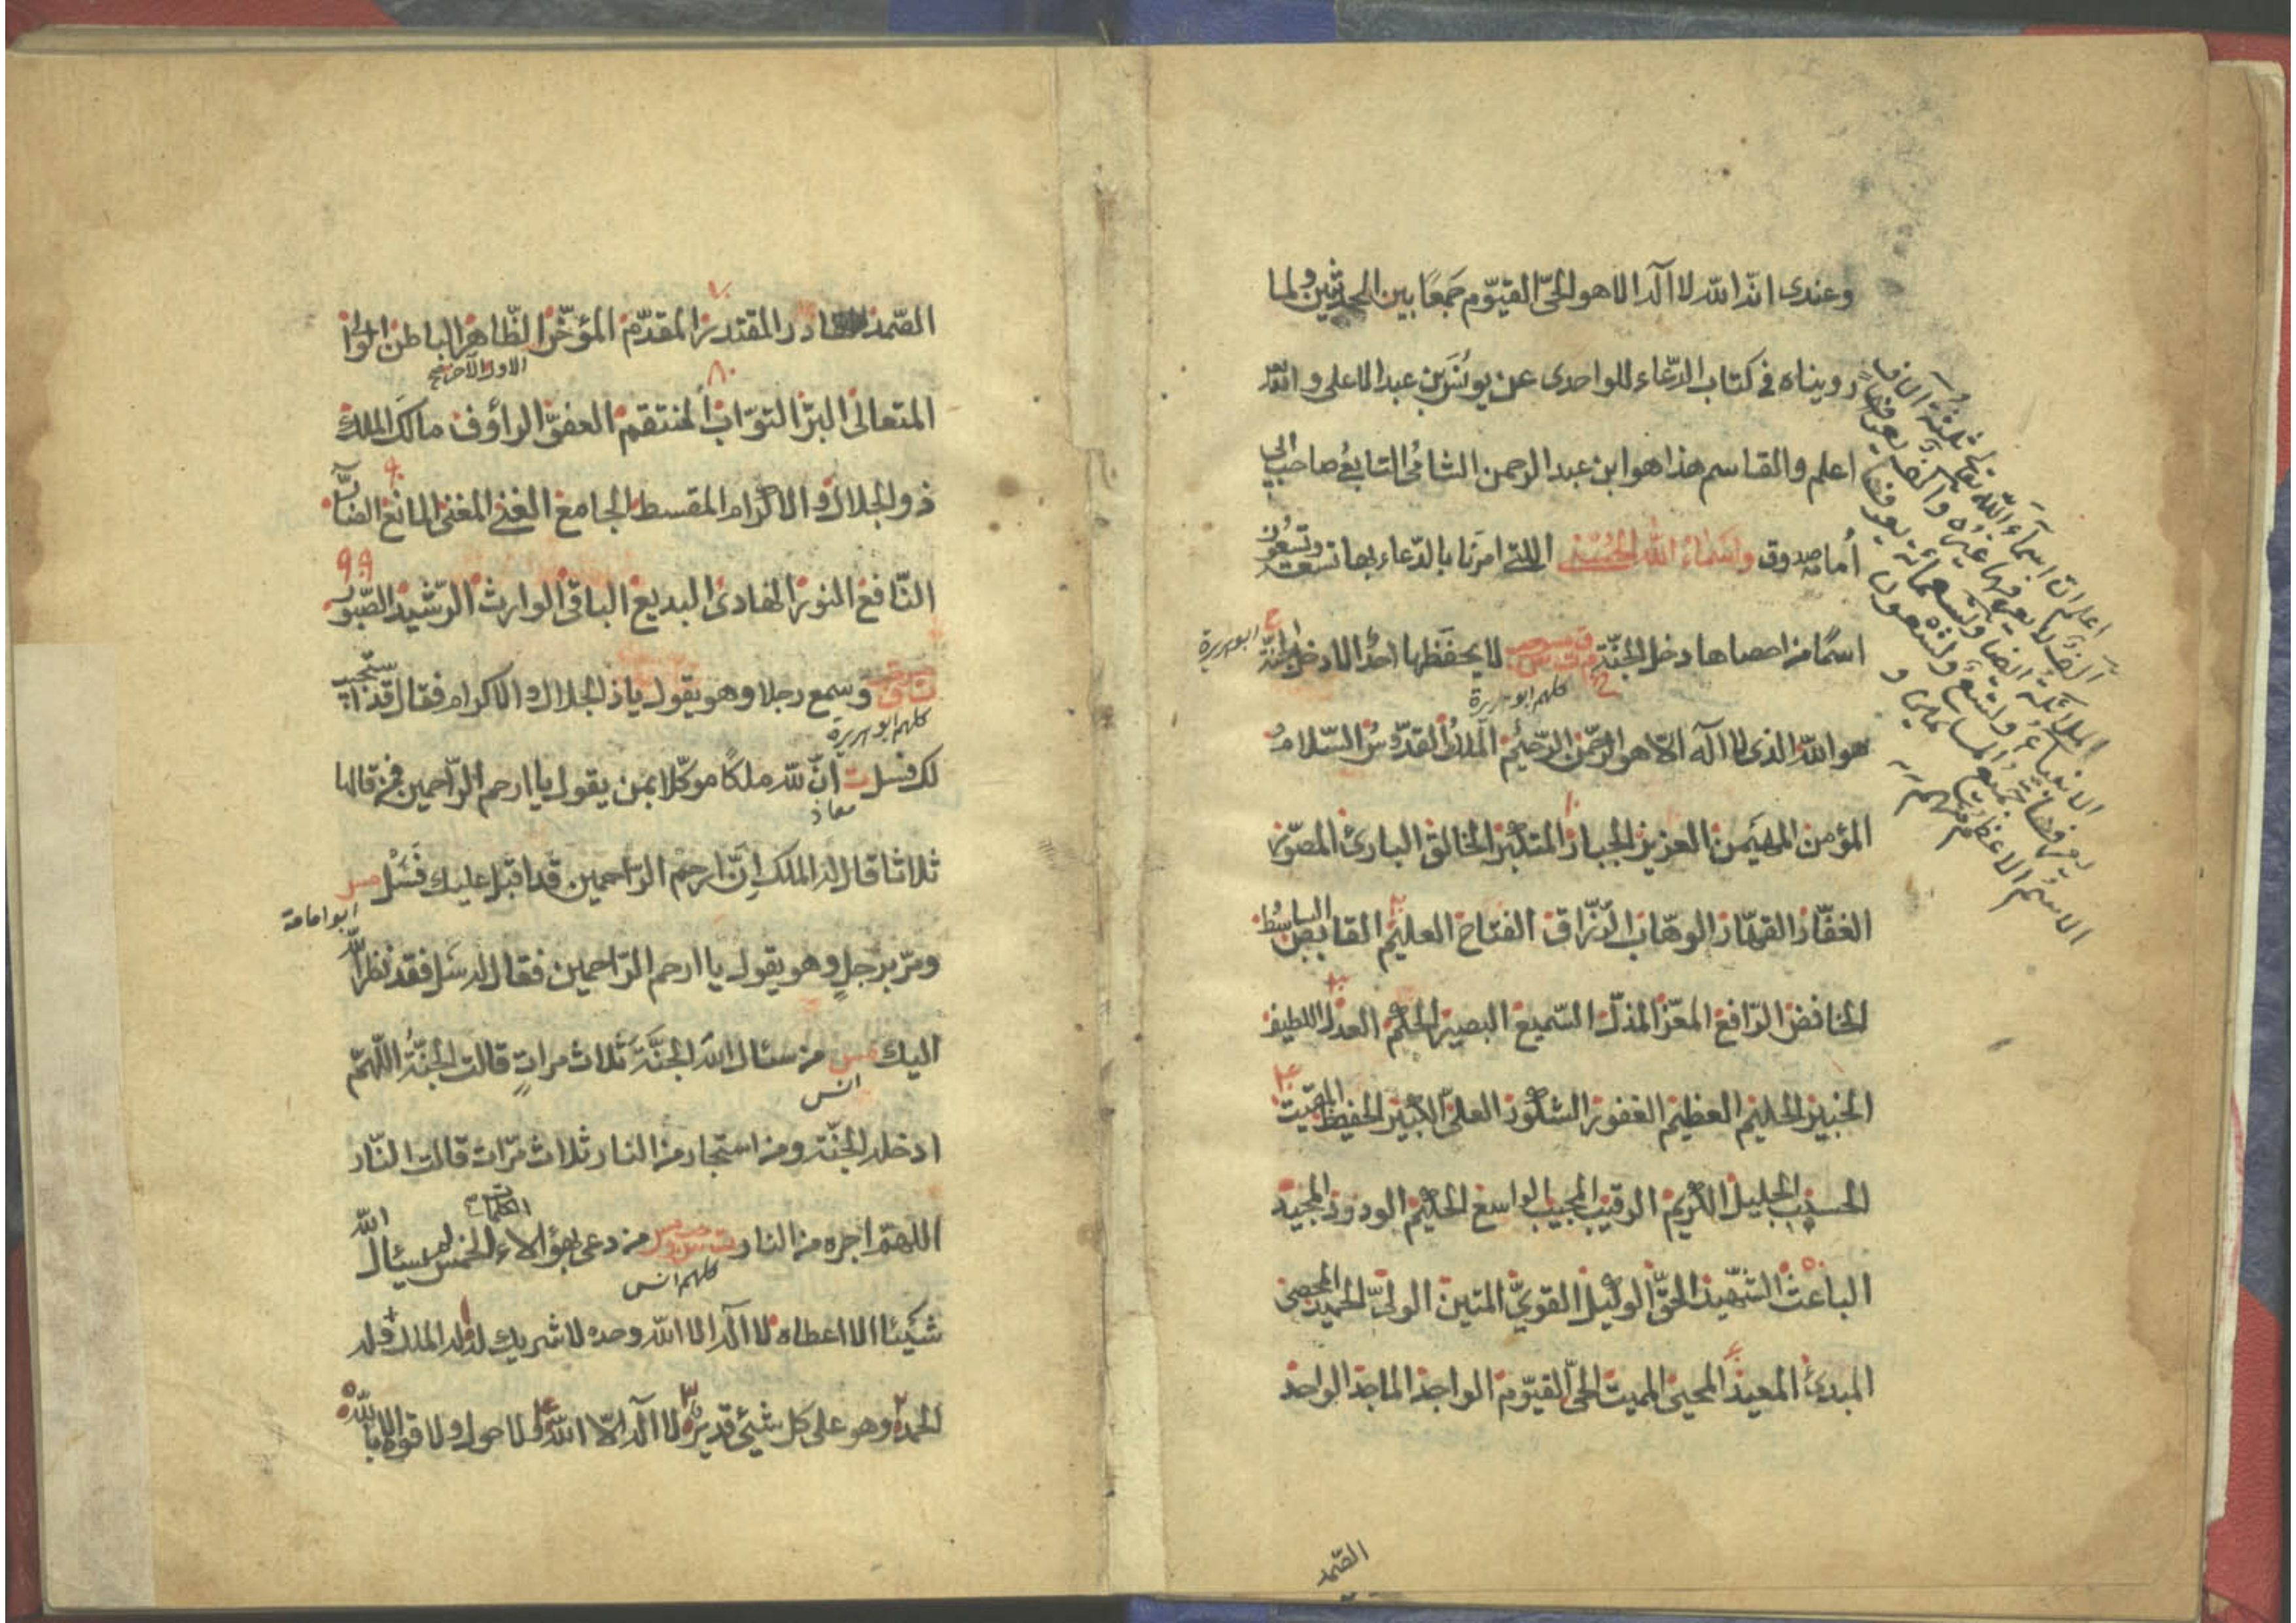 وعندى انه الله لا اله الا هو الحىّ القيّوم جَمعًا بين الحديثين ولما
رويناه فى كتاب الدّعاء للواحدى عن يونس بن عبد الاعلى والله
اعلم والقاسم هذا هو ابن عبد الرحمن الشامى التابعى صاحب ابى
أمامة صدوق واسماء الله الحُسْنى اللتى امرنا بالدّعاء بها تسعة وتسعون
اسمًا من احصاها دخل الجنّة لا يحفظها احدٌ الا دخل الجنّة
ابو هريرة
كلهم ابو هريرة
هو الله الذى لا اله الّا هو الرحمن الرّحيم الملك القدّوس السّلام
المؤمن المهيمن العزيز الجبار المتكبّر الخالق البارئ المصوّر
١٠
الغفّار القهّار الوهّاب الرّزاق الفتاح العليم القابض الباسط
٢٠
الخافض الرّافع المعزّ المذلّ السّميع البصير الحكم العدل اللطيف
٣٠
الخبير الحليم العظيم الغفور الشكور العلىّ الكبير الحفيظ المقيت
الحسيب الجليل الكريم الرقيب المجيب الواسع الحكيم الودود المجيد
الباعث الشّهيد الحقّ الوكيل القوىّ المتين الولىّ الحميد المحصى
٥٠
المبدئ المعيد المحيى المميت الحىّ القيّوم الواجد الماجد الواحد
الصّمد
اعلم ان اسمآء الله تعالى ثلثة آلاف
الف لا يعرفها غيره والف يعرفها
الملائكة ايضا وتسعمائة يعرفها
الانبياء وتسع وتسعون
الاسم الاعظم
الصّمد القادر المقتدر المقدّم المؤخّر الظّاهر الباطن الوالى
٧٠
الاول الآخر صح
المتعالى البرّ التوّاب المنتقم العفوّ الرأوف مالك الملك
٨٠
ذو الجلال والاكرام المقسط الجامع الغنى المغنى المانع الضآرّ
٩٠
النّافع النور الهادى البديع الباقى الوارث الرّشيد الصّبور
٩٩
وسمع رجلا وهو يقول يا ذا الجلال والاكرام فقال قد استجيب
كلهم ابو هريرة
لك فسل ت انّ لله ملكًا موكّلا بمن يقول يا ارحم الرّاحمين فمن قالها
معاذ
ثلاثا قال له الملك اِنّ ارحم الرّاحمين قد اقبل عليك فَسَل مس
ابو امامة
ومرّ برجلٍ وهو يقول يا ارحم الرّاحمين فقال له سَل فقد نظر الله
اليك مس من سئال الله الجنّة ثلاث مراتٍ قالت الجنّةُ اللّهمّ
انس
ادخله الجنّة ومن استجار من النار ثلاث مرّات قالت النّار
اللهمّ اجره من النار من دعى بهؤلاء الكلمات الخمس لم يسئال الله
كلهم انس
شَيئًا الا اعطاه لا اله الا الله وحده لا شريك له له الملك وله
الحمد وهو على كل شيئ قدير لا اله الّا الله ولا حول ولا قوة الا بالله